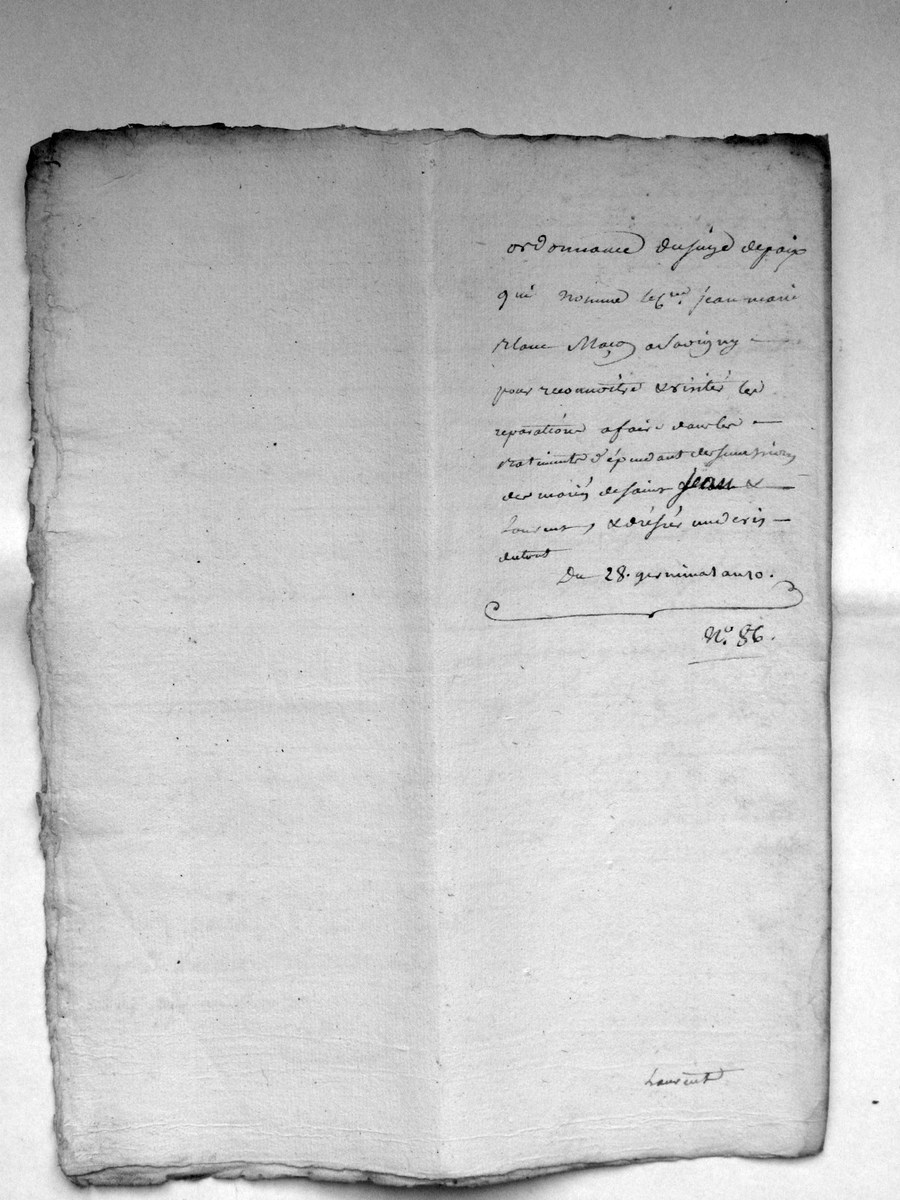 ordonnance du juge de paix
qui nomme le C.en jean marie
Blanc Maçon a Savigny
pour reconnoitre & visiter les
reparations a faire dans les
batiments dépendant de
des mariés de Saint jean &
Laurent, & dresser un devis
du tout
Du 28. germinal an 10.
N.o 86.
Laurent